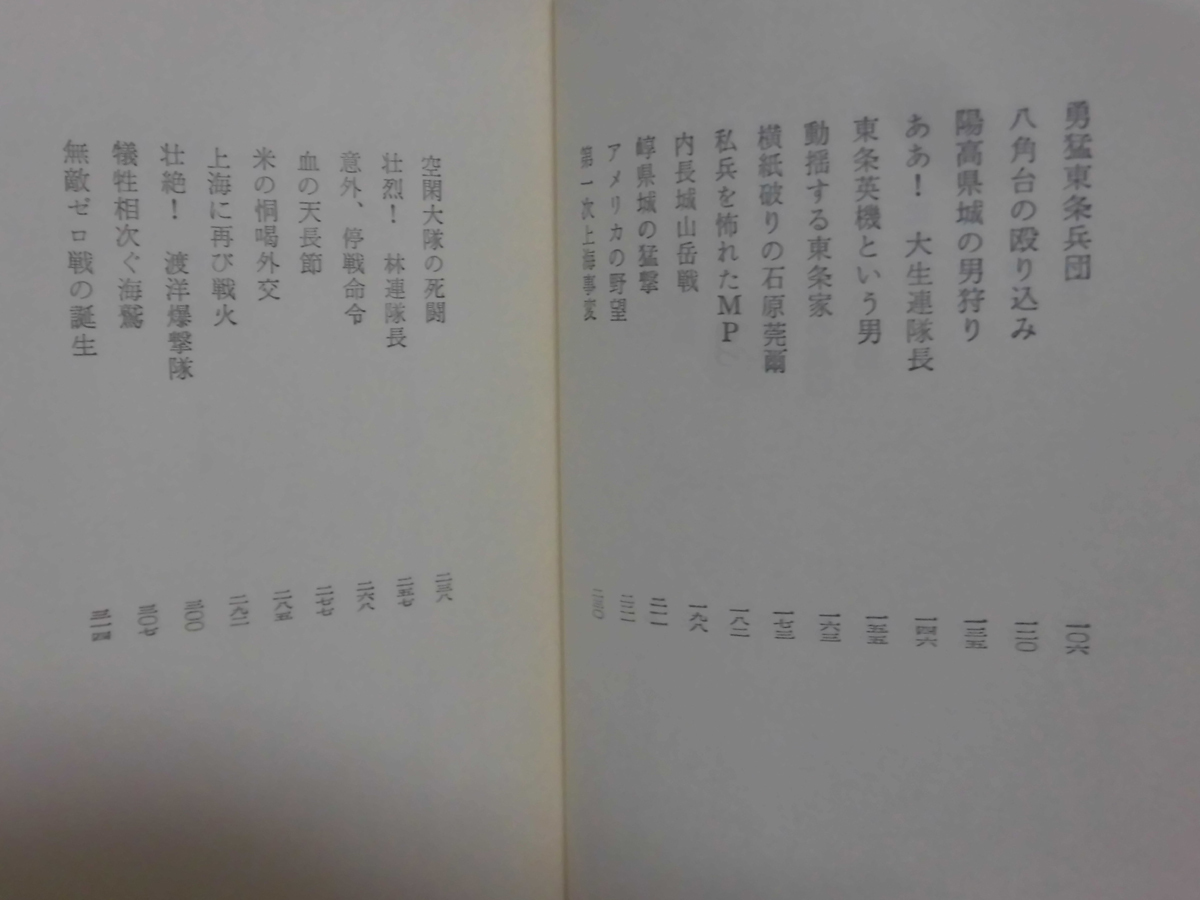 勇猛東条兵団 一〇六
八角台の殴り込み 一二〇
陽高県城の男狩り 一三五
ああ！ 大生連隊長 一四六
東条英機という男 一五五
動揺する東条家 一六三
横紙破りの石原莞爾 一七三
私兵を怖れたMP 一八二
内長城山岳戦 一九八
崞県城の猛撃 二一一
アメリカの野望 二二一
第一次上海事変 二三〇
空閑大隊の死闘 二三八
壮烈！ 林連隊長 二五七
意外、停戦命令 二六八
血の天長節 二七七
米の恫喝外交 二八五
上海に再び戦火 二九二
壮絶！ 渡洋爆撃隊 三〇〇
犠牲相次ぐ海鷲 三〇七
無敵ゼロ戦の誕生 三一四